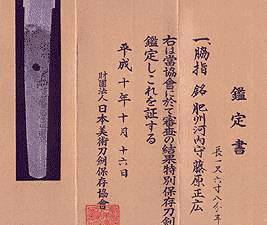 鑑定書
一、脇指 銘 肥州河内守藤原正広
長一尺六寸八分
右は當協會に於て審査の結果特別保存刀剣
鑑定しこれを証する
平成十年十月十六日
財團法人日本美術刀剣保存協會